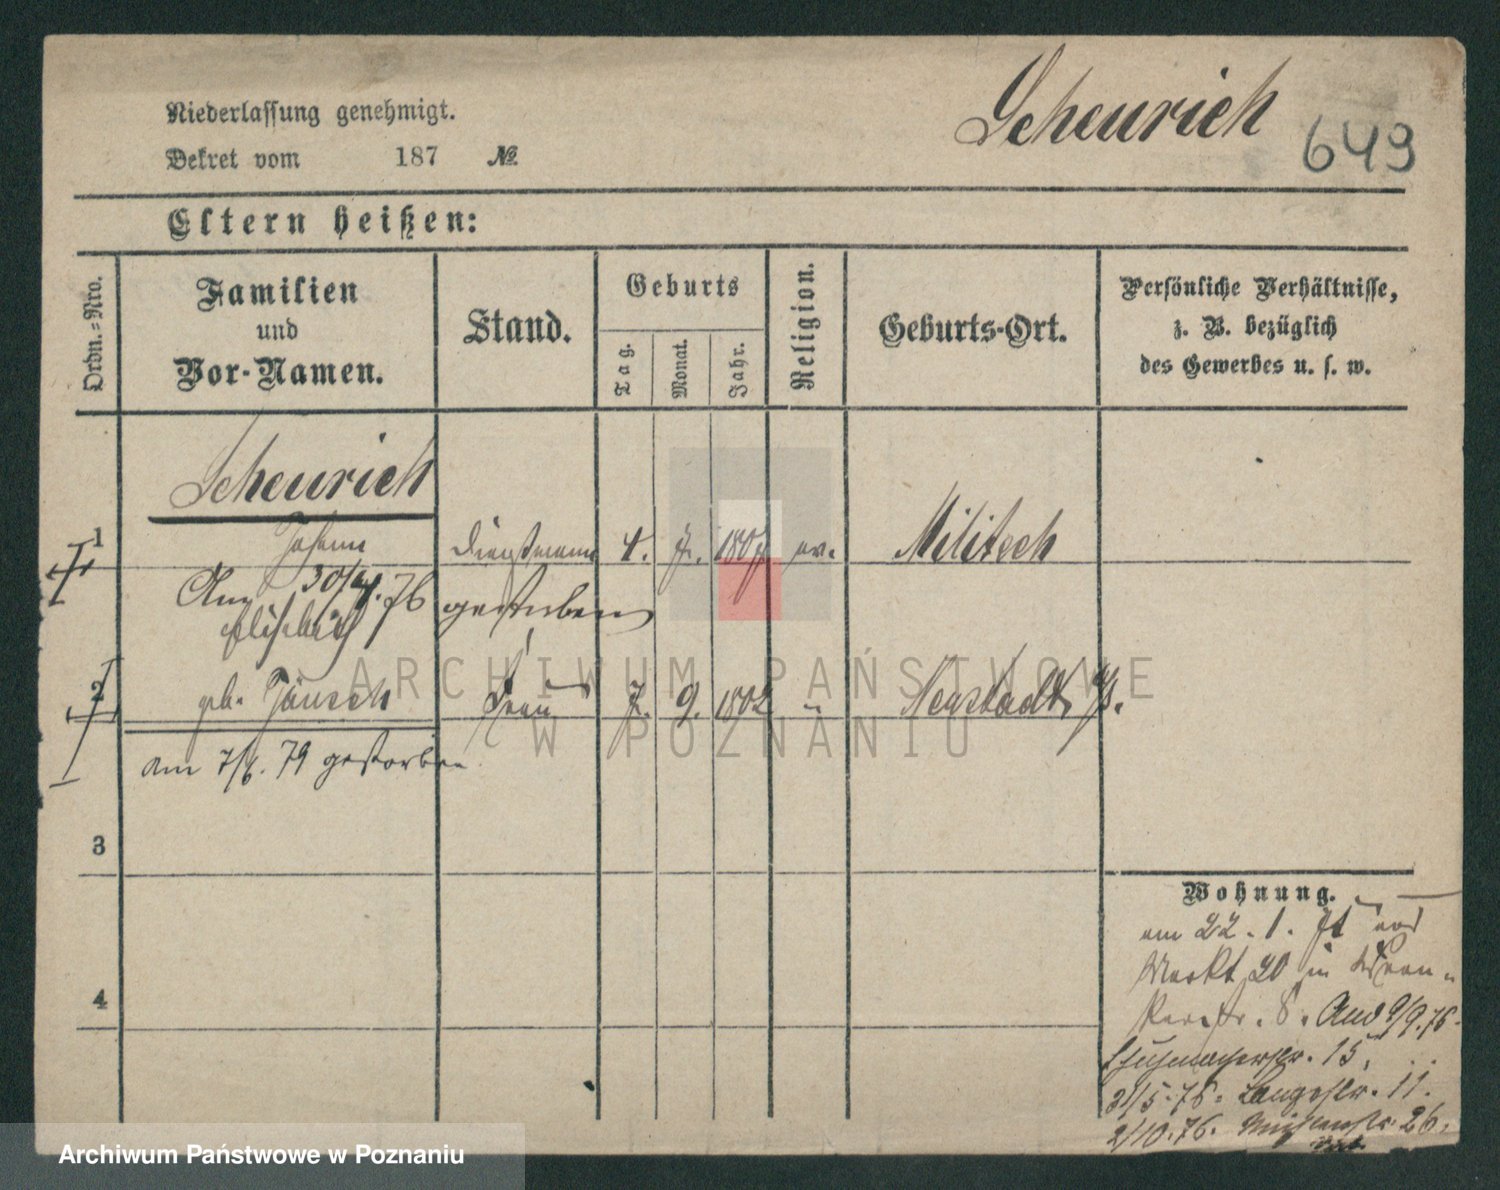 Niederlassung genehmigt.
Dekret vom 187 №
Scheurich 649
Eltern heißen:
Ordn.-Nro.
Familien
und
Vor-Namen.
Stand.
Geburts
Tag.
Monat.
Jahr.
Religion.
Geburts-Ort.
Persönliche Verhältnisse,
z. B. bezüglich
des Gewerbes u. s. w.
Scheurich
1 Johann Dienstmann 4. 1807 ev. Militsch
Am 30/4.76 gestorben
Elisabeth
2 geb. Jänsch Frau 7. 9. 1802 " Neustadt
am 7/6. 79 gestorben
3
4
Wohnung.
am 22. 1. von
Markt 20 in
8. 9/9.75.
Schuhmacherstr. 15.
31/5.76. Langestr. 11.
2/10.76. 26.
ARCHIWUM PAŃSTWOWE
W POZNANIU
Archiwum Państwowe w Poznaniu